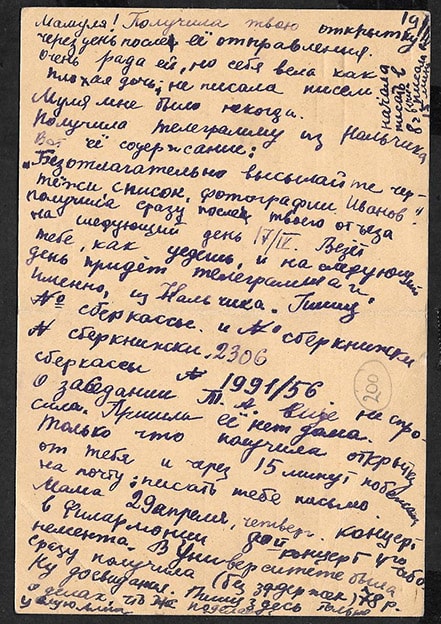 Мамуля! Получила твою открытку
через день после её отправления.
Очень рада ей, но себя вела как
плохая дочь, не писала писем.
Муля мне было некогда.
Получила телеграмму из Нальчика
Вот её содержание:
„Безотлагательно высылайте чер-
тежи, список, фотографии. Иванов."
получила сразу после твоего отъезда
на следующий день 17/IV. Везёт
тебе, как уедешь, и на следующий
день придёт телеграмма и,
именно, из Нальчика. Пишу
№ сберкассы. и № сберкнижки
№ сберкнижки 2306
сберкассы № 1991/56
О заседании еще не спро-
сила. Пришла её нет дома.
Только что получила открытку
от тебя и через 15 минут побегу
на почту; писать тебе письмо.
Мама 29 апреля, четверг. концерт
в филармонии концерт у або-
немента. В Университете была
сразу получила (без задержек) 78 р.
Ну досвидания. Пишу здесь только
о делах,
19
начала
писать в
8 ч
15 минут
200